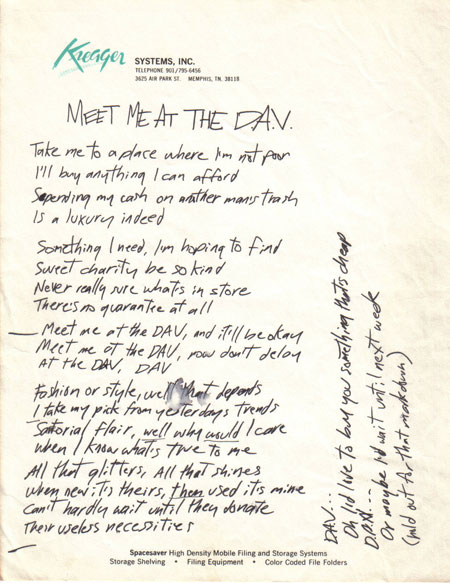 Kreager SYSTEMS, INC.
TELEPHONE 901/795-6456
3625 AIR PARK ST. MEMPHIS, TN. 38118
MEET ME AT THE D.A.V.
Take me to a place where I'm not poor
I'll buy anything I can afford
Spending my cash on another man's trash
Is a luxury indeed
Something I need, I'm hoping to find
Sweet charity be so kind
Never really sure what's in store
There's no guarantee at all
Meet me at the DAV, and it'll be okay
Meet me at the DAV, now don't delay
At the DAV, DAV
Fashion or style, well that depends
I take my pick from yesterdays trends
Sartorial flair, well why would I care
When I know what's true to me
All that glitters, All that shines
When new it's theirs, then used it's mine
Can't hardly wait until they donate
Their useless necessities
DAV...
Oh I'd love to buy you something that's cheap
D.A.V....
Or maybe I'd wait until next week
(hold out for that markdown)
Spacesaver High Density Mobile Filing and Storage Systems
Storage Shelving • Filing Equipment • Color Coded File Folders